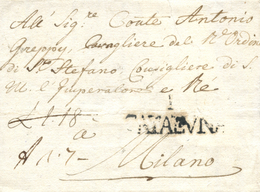 All' Sig.re Conte Antonio
Greppy, Cavagliere del R. Ordine
di Sn. Stefano Consigliere di S.
M. l'Imperatore e Ré
a
CATALVÑA
Milano